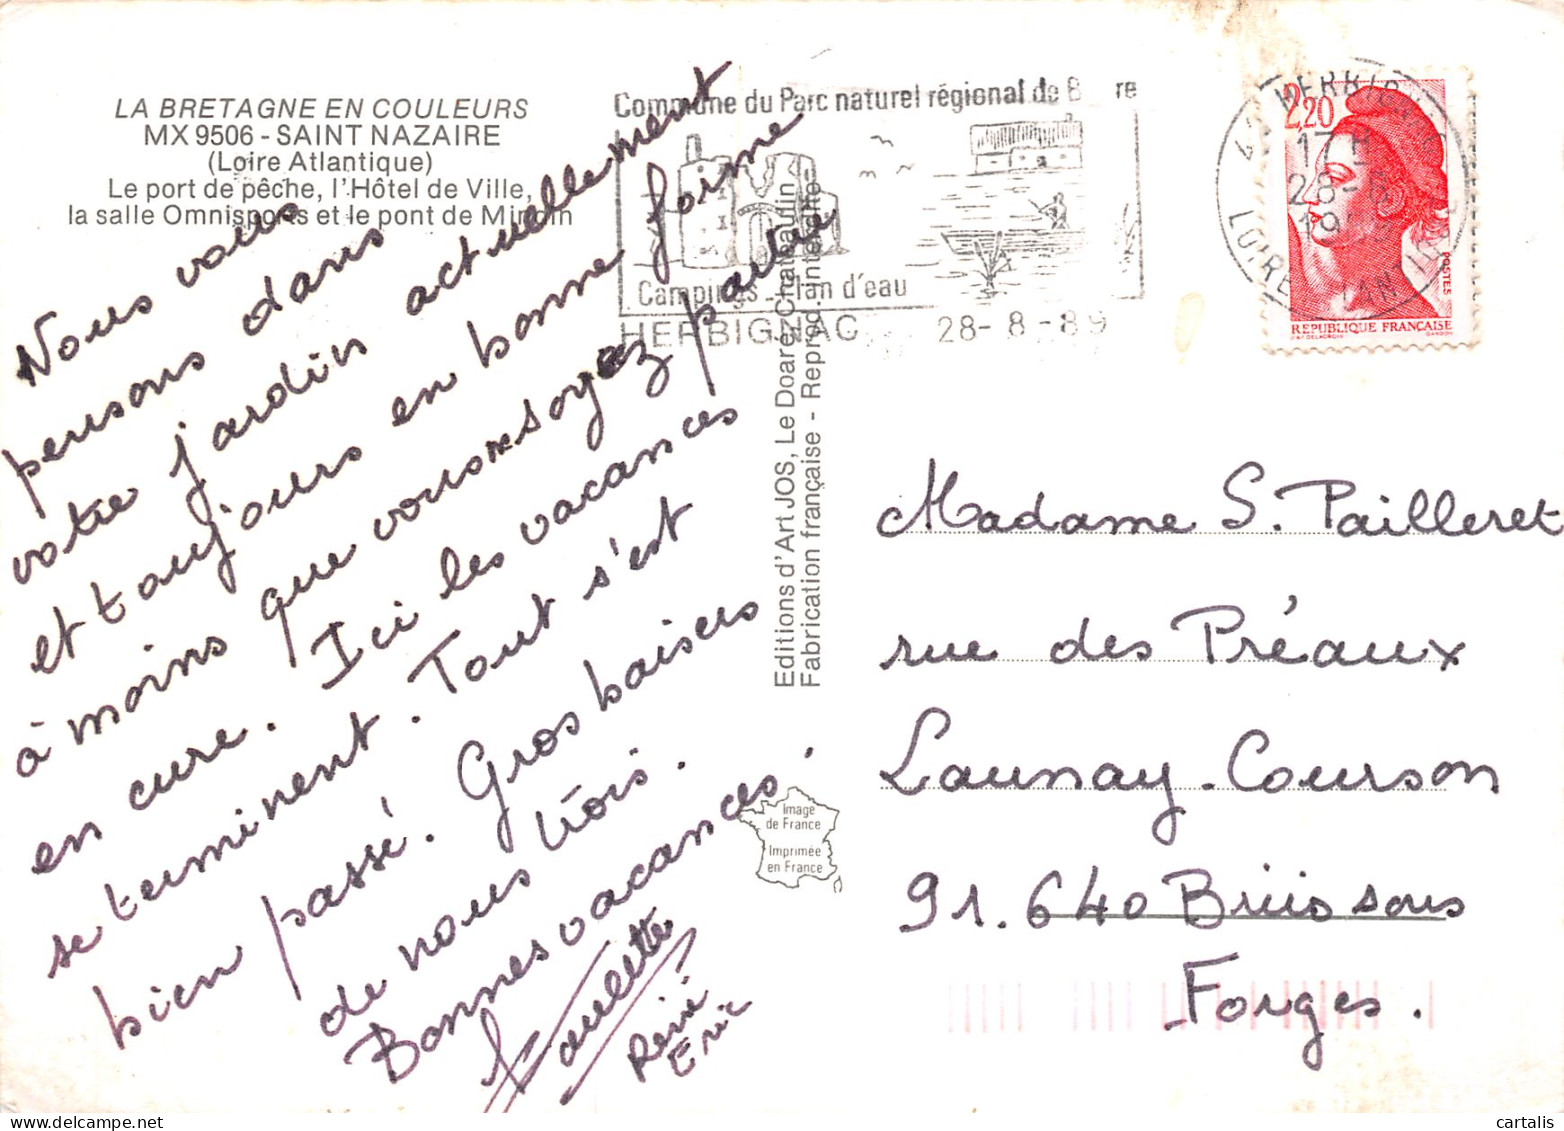 LA BRETAGNE EN COULEURS
MX 9506 - SAINT NAZAIRE
(Loire Atlantique)
Le port de pêche, l'Hôtel de Ville,
la salle Omnisports et le pont de Mindin
Nous vous
pensons dans
votre jardin actuellement
et toujours en bonne forme
à moins que vous ne soyez partie
en cure. Ici les vacances
se terminent. Tout s'est
bien passé. Gros baisers
de nous trois.
Bonnes vacances.
Paulette
René
Eric
Commune du Parc naturel régional de
Campings - Plan d'eau
HERBIGNAC 28-8-89
Editions d'Art JOS, Le Doaré, Châteaulin
Fabrication française - Reprod. interdite
Image
de France
Imprimée
en France
2,20
17 H
28-8
POSTES
REPUBLIQUE FRANÇAISE
Madame S. Pailleret
rue des Préaux
Launay-Courson
91.640 Briis sous
Forges.
cartalis